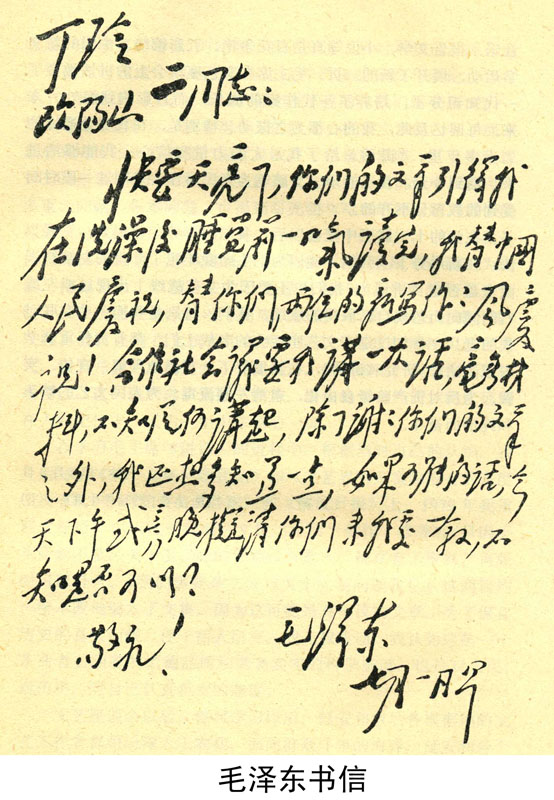 丁玲
欧阳山 二同志：
快要天亮了，你们的文章引得我
在洗澡後睡覺前一口氣讀完，我替中國
人民慶祝，替你们两位的新写作、风慶
祝！合作社会議要我講一次话，毫無材
料，不知從何講起，除了謝〻你们的文章
之外，我还想多知道一点，如果可能的话，今
天下午或傍晚擬請你们来我處一敘，不
知是否可以？
敬礼！
毛澤东
七月一日早
毛泽东书信